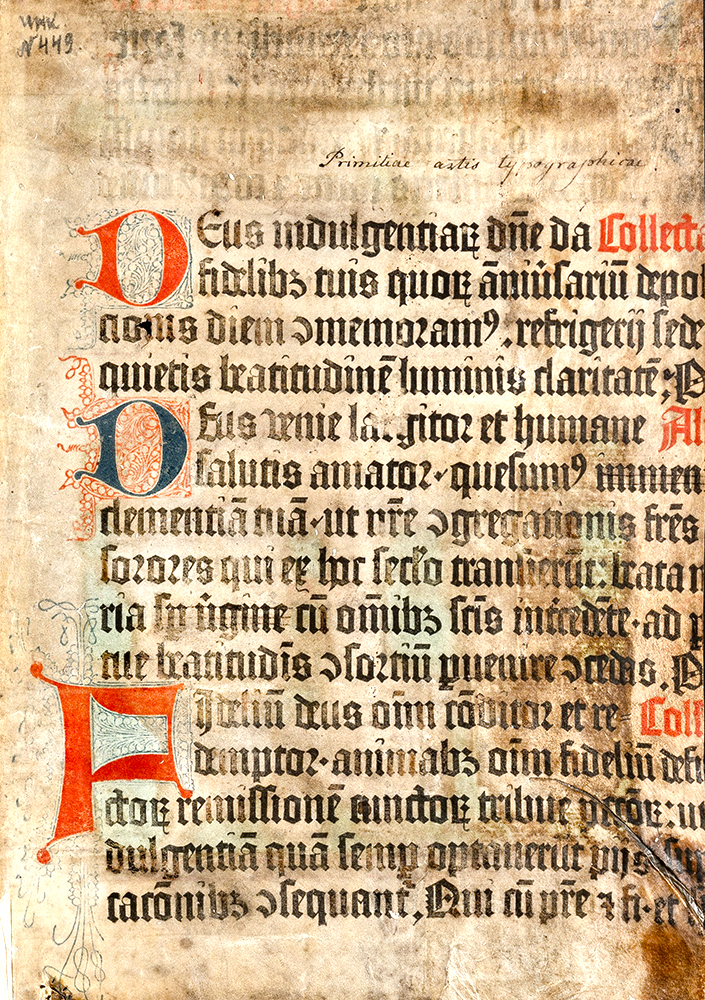 ИНК
N 449.
Primitiae artis typographicae
DEus indulgentiaꝝ dn̄e da Collecta
fidelibꝫ tuis quoꝝ āniu̇sariū depo
cionis diem ↄmemoramꝰ. refrigerij sede
quietis beatitudinē luminis claritatē;
DEus venie largitor et humane Al
salutis amator·quesumꝰ immen
clementiā tuā·ut nr̄e ↄgregationis fr̄es
sorores qui ex hoc sec̄lo transierūt: beata m
ria sꝑ v̇gine cū om̄ibꝫ sc̄is int̄cedēte·ad
tue beatitudīs ↄsortiū ꝑuenire ↄcedas.
FIdeliū deus oīm cōditor et re= Coll
demptor·animabꝫ oīm fideliū defu
ctoꝝ remissionē cunctoꝝ tribue pctōꝝ: ut
dulgentiā quā semꝑ optauerūt pijs sup
cacōnibꝫ ↄsequant̄, Qui cū pr̄e ⁊ fi·et